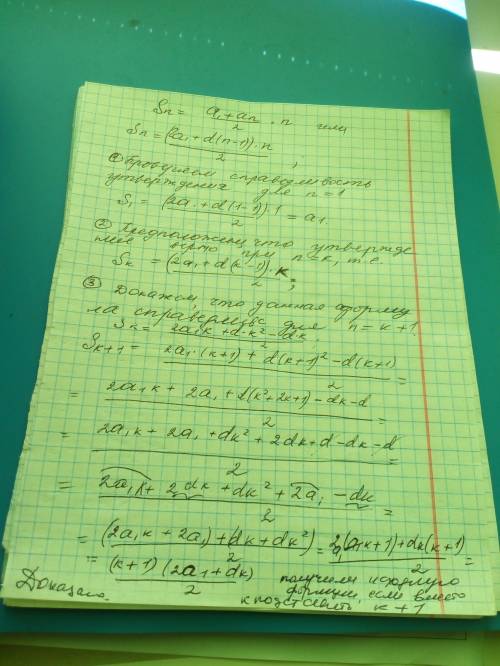 Sn = (a₁ + an)/2 · n или
Sn = ((2a₁ + d(n-1))·n)/2 ;
① Проверяем справедливость
утверждения для n=1
S₁ = ((2a₁ + d(1-1))·1)/2 = a₁
② Предположим, что утвержде
ние верно при n=k, т.е.
Sk = ((2a₁ + d(k-1))·k)/2 ;
③ Докажем, что данная форму
ла справедлива для n=k+1.
Sk = (2a₁k + d·k² - dk)/2
Sk+1 = (2a₁·(k+1) + d(k+1)² - d(k+1))/2 =
= (2a₁k + 2a₁ + d(k²+2k+1) - dk - d)/2 =
= (2a₁k + 2a₁ + dk² + 2dk + d - dk - d)/2 =
= (2a₁k + 2dk + dk² + 2a₁ - dk)/2 =
= ((2a₁k + 2a₁) + (dk + dk²))/2 = (2a₁(k+1) + dk(k+1))/2 =
= ((k+1)(2a₁ + dk))/2 получили исходную
формулу, если вместо
Доказано. k подставить k+1